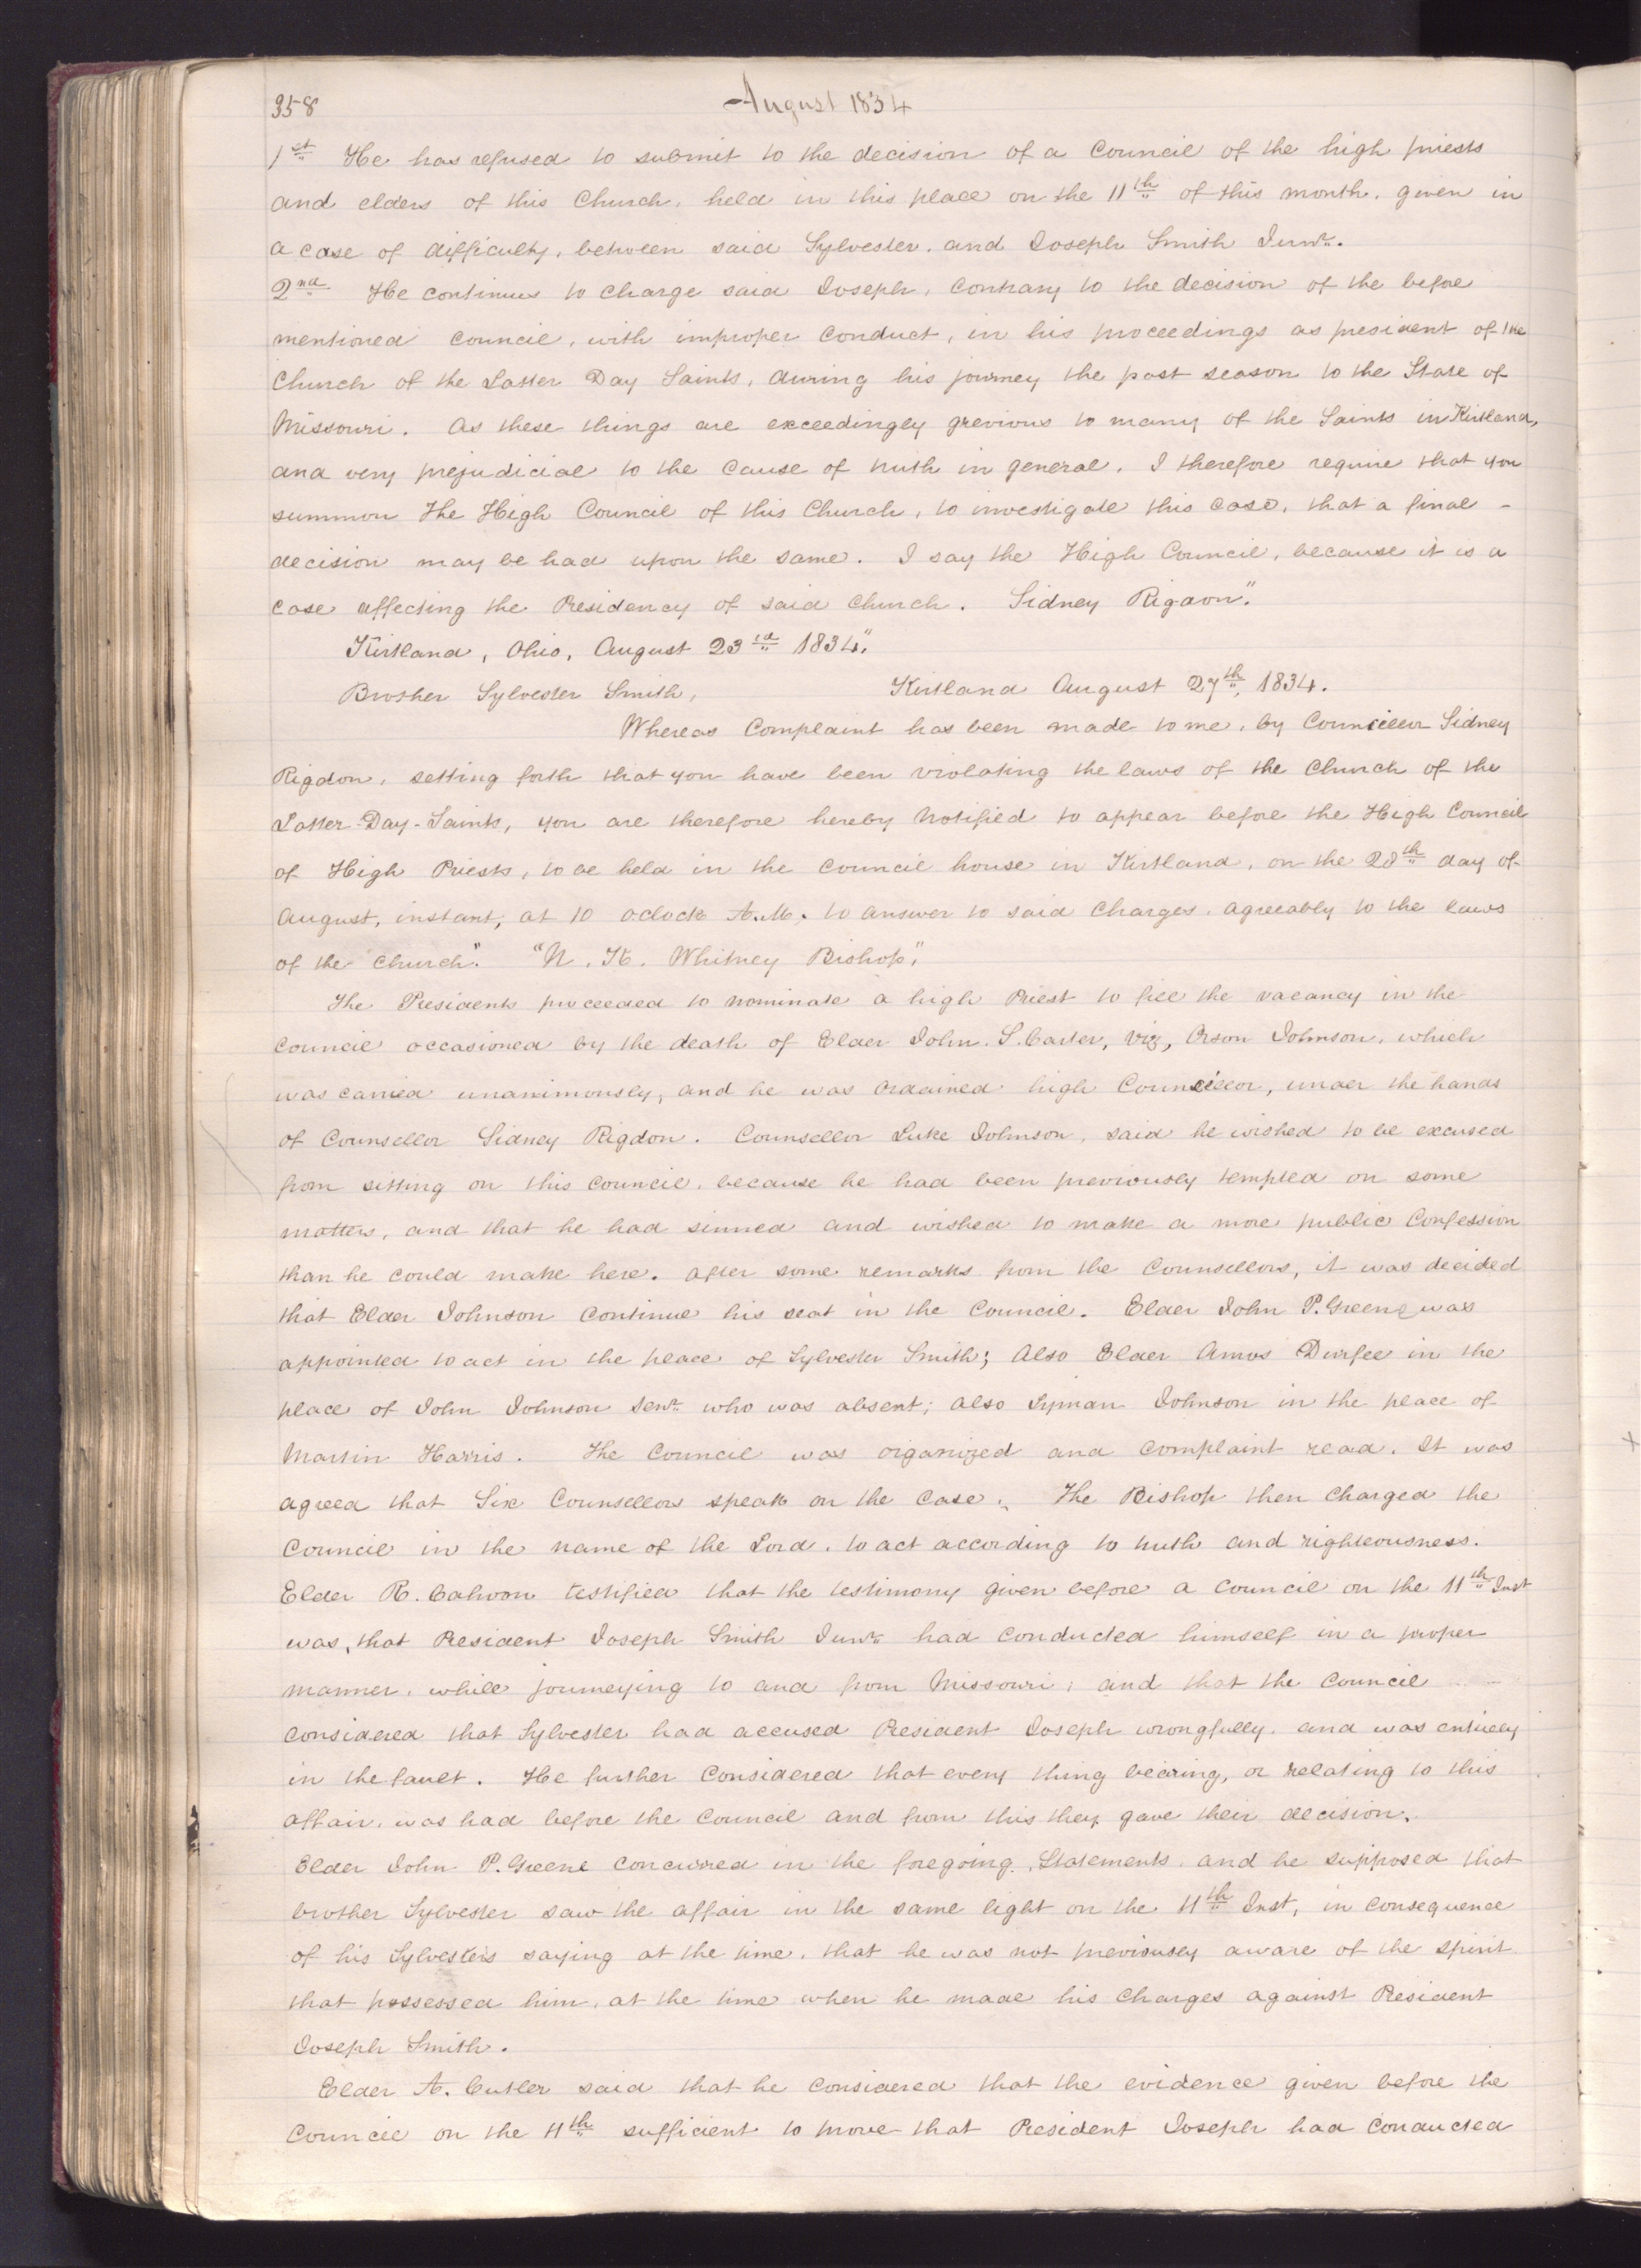 358
August 1834
1st He has refused to submit to the decision of a Council of the high priests
and elders of this Church, held in this place on the 11th of this month, given in
a case of difficulty, between said Sylvester, and Joseph Smith Junr.
2nd He continues to charge said Joseph, contrary to the decision of the before
mentioned council, with improper conduct, in his proceedings as president of the
Church of the Latter Day Saints, during his journey the past season to the State of
Missouri. As these things are exceedingly grevious to many of the Saints in Kirtland,
and very prejudicial to the cause of truth in general, I therefore require that you
summon the High Council of this Church, to investigate this case, that a final -
decision may be had upon the same. I say the High Council, because it is a
case affecting the Presidency of said church. Sidney Rigdon."
Kirtland, Ohio, August 23rd 1834."
Brother Sylvester Smith, Kirtland August 27th, 1834.
Whereas Complaint has been made to me, by Councillor Sidney
Rigdon, setting forth that you have been violating the laws of the Church of the
Latter-Day-Saints, you are therefore hereby notified to appear before the High Council
of High Priests, to be held in the council house in Kirtland, on the 28th day of
August, instant, at 10 oclock A.M. to answer to said charges, agreeably to the laws
of the church." "N. K. Whitney Bishop,"
The Presidents proceeded to nominate a high Priest to fill the vacancy in the
council occasioned by the death of Elder John. S. Carter, viz, Orson Johnson, which
was carried unanimously, and he was ordained high Councillor, under the hands
of Counsellor Sidney Rigdon. Counsellor Luke Johnson, said he wished to be excused
from sitting on this council, because he had been previously tempted on some
matters, and that he had sinned and wished to make a more public confession
than he could make here. After some remarks from the Counsellors, it was decided
that Elder Johnson continue his seat in the Council. Elder John P. Greene was
appointed to act in the place of Sylvester Smith; Also Elder Amos Durfee in the
place of John Johnson Senr. who was absent; also Lyman Johnson in the place of
Martin Harris. The Council was organized and complaint read. It was
agreed that Six Counsellors speak on the case. The Bishop then charged the
Council in the name of the Lord, to act according to truth and righteousness.
Elder R. Cahoon testified that the testimony given before a council on the 11th Inst
was, that President Joseph Smith Junr. had conducted himself in a proper
manner, while journeying to and from Missouri; and that the council
considered that Sylvester had accused President Joseph wrongfully, and was entirely
in the fault. He further considered that every thing bearing, or relating to this
affair, was had before the council and from this they gave their decision.
Elder John P. Greene concurred in the foregoing, Statements, and he supposed that
brother Sylvester saw the affair in the same light on the 11th Inst, in consequence
of his Sylvester's saying at the time, that he was not previously aware of the spirit
that possessed him, at the time when he made his charges against President
Joseph Smith.
Elder A. Cutler said that he considered that the evidence given before the
Council on the 11th sufficient to prove that President Joseph had conducted